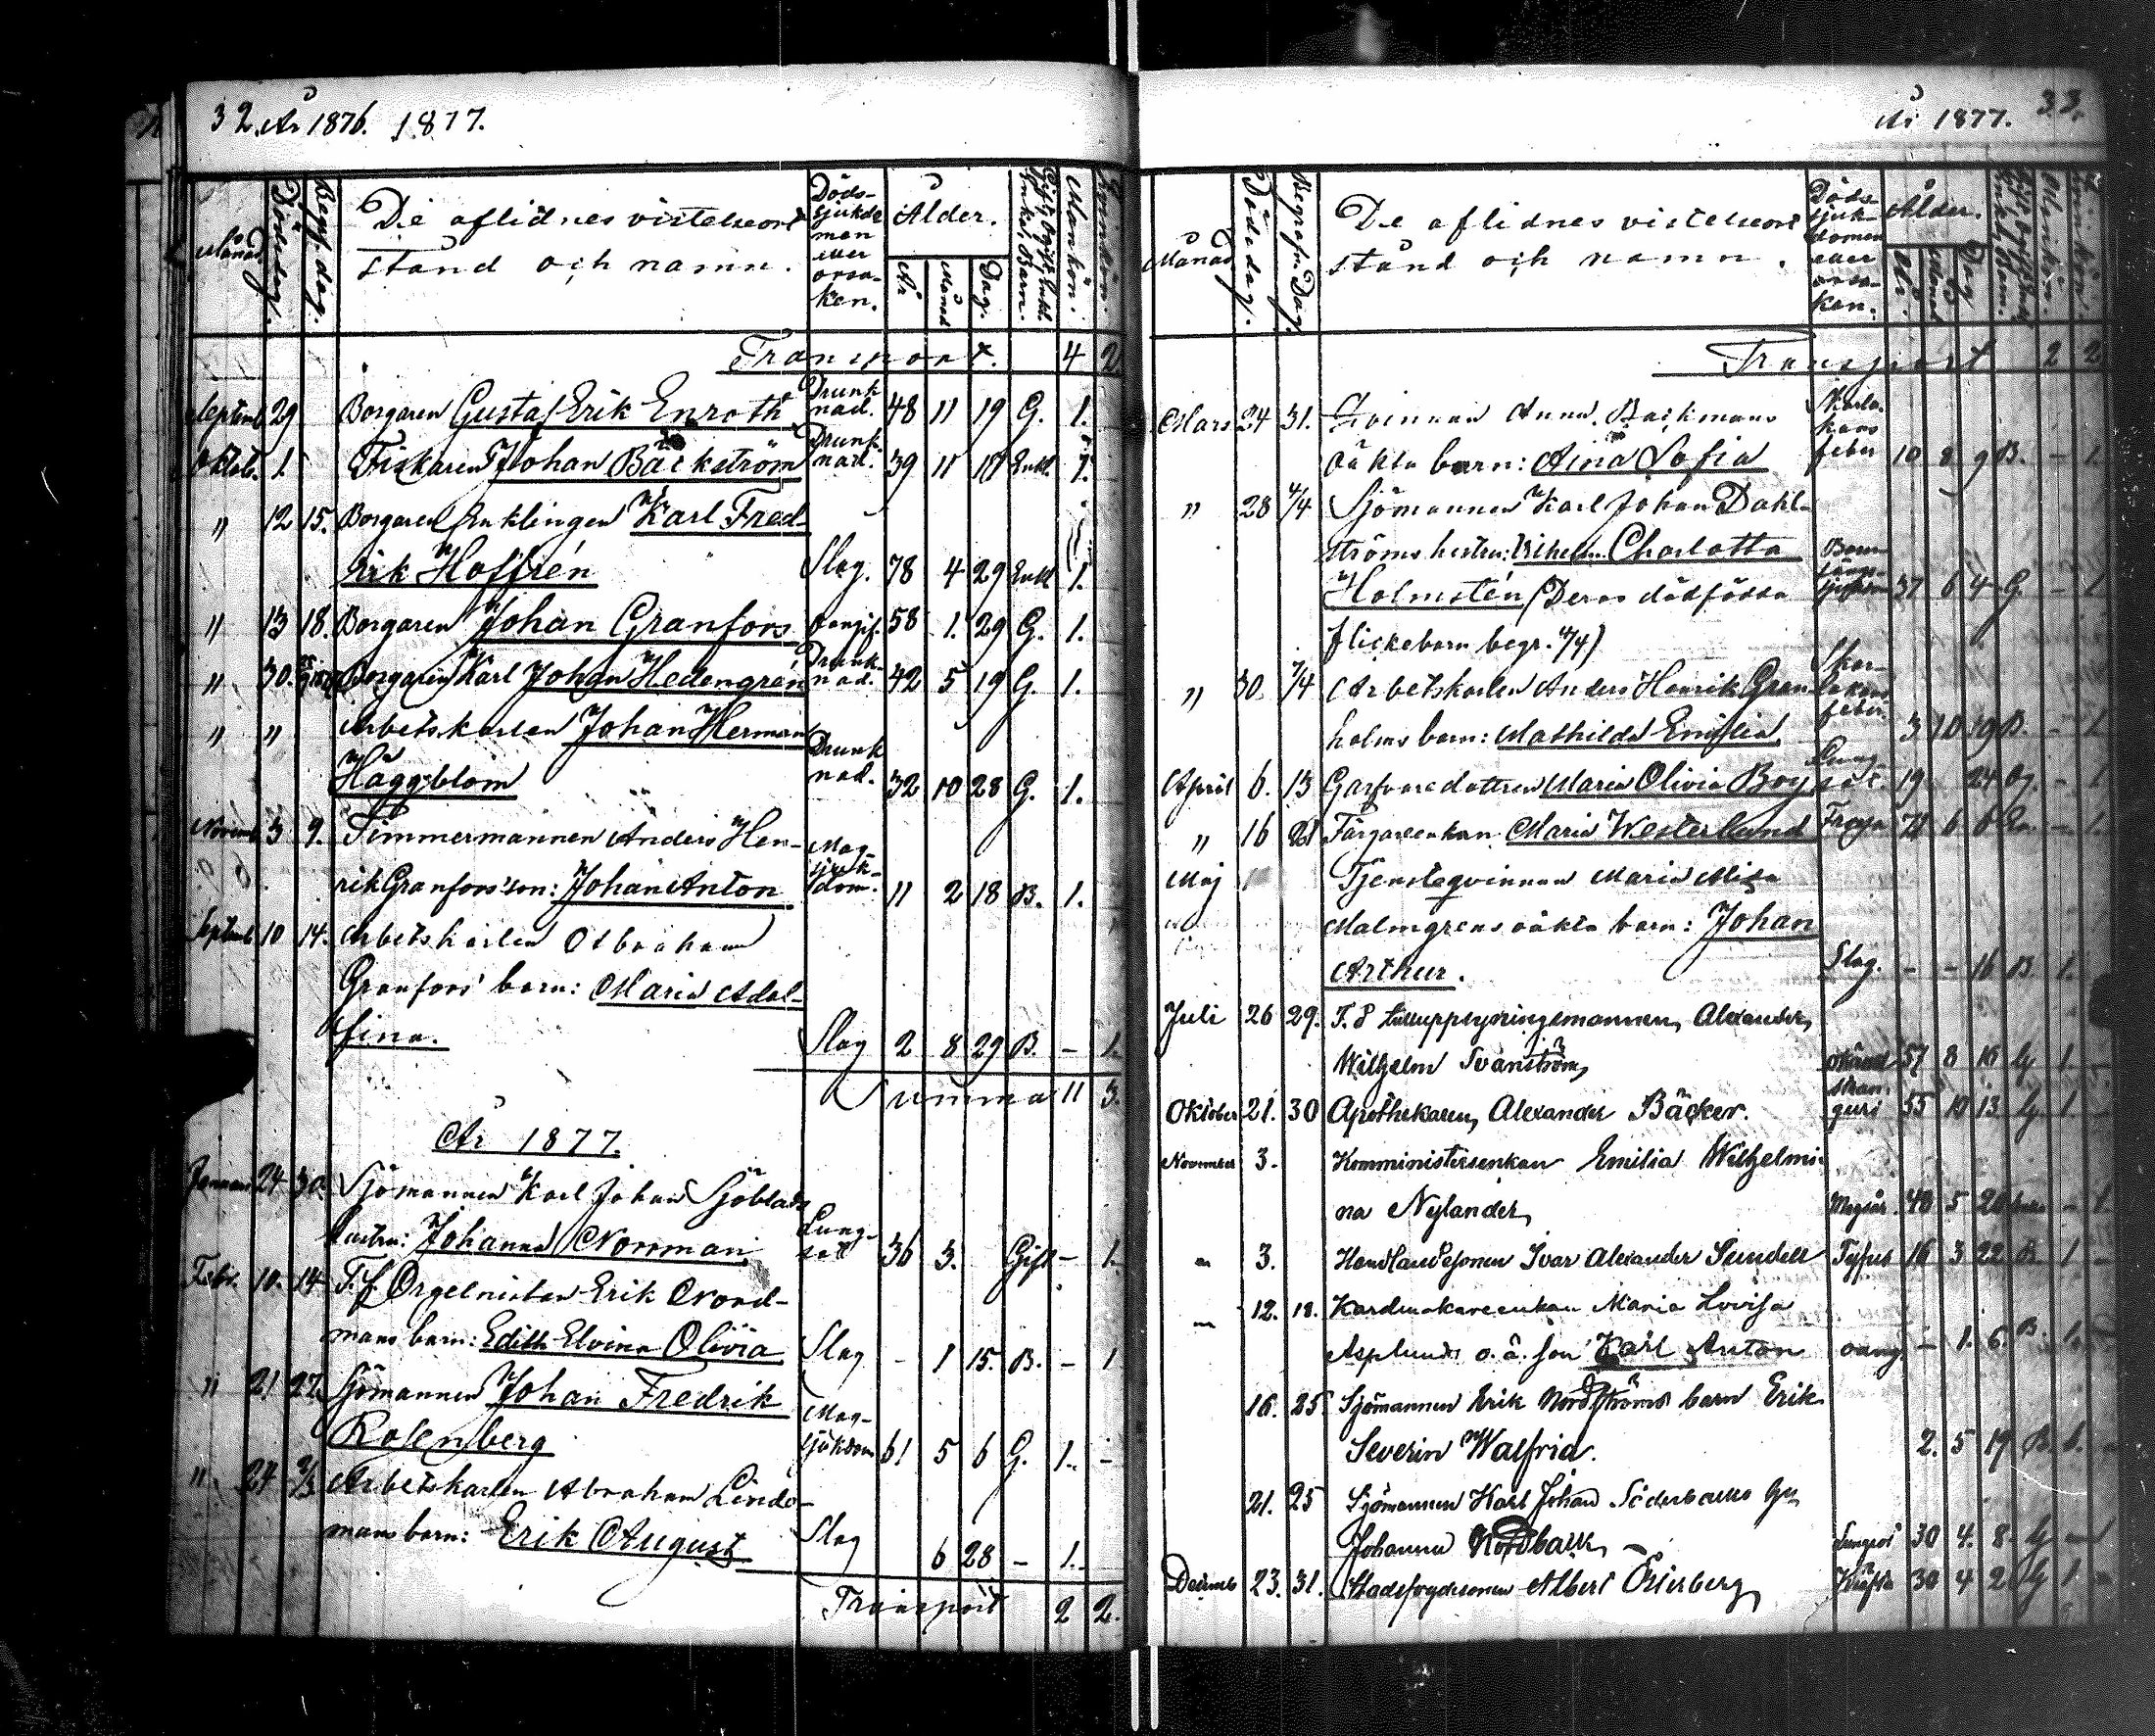 32. År 1876. 1877.
Månad Dödsdag. Begr. dag. De aflidnes vistelseort stånd och namn. Döds-sjukdomen eller orsaken. Ålder. År Månad Dag. Gift, Ogift, Enkl. Enka, Barn. Mankön. Qvinkön.
Transport. 4 2
Septemb. 29 Borgaren Gustaf Erik Enroth Drunknad. 48 11 19 G. 1.
Oktob. 1. Fiskaren Johan Bäckström Drunknad. 39 11 18 Enkl. 1.
" 12 15. Borgaren Enklingen Karl Fred-
rik Hoffrén Slag. 78 4 29 Enkl 1.
" 13 18. Borgaren Johan Granfors 58 1. 29 G. 1.
" 30. Borgaren Karl Johan Hedengrén Drunknad. 42 5 19 G. 1.
" " Arbetskarlen Johan Herman
Häggblom Drunknad. 32 10 28 G. 1.
Novemb. 3 9. Timmermannen Anders Hen-
rik Granfors' son: Johan Anton Magsjukdom. 11 2 18 B. 1.
Septemb 10 14. Arbetskarlen Abraham
Granfors' barn: Maria Adol-
fina. Slag 2 8 29 B. – 1.
Summa 11 3.
År 1877.
Januari 24 30. Sjömannen Karl Johan Sjöblads
hustru: Johanna Norrman Lungsot 36 3. Gift – 1.
Febr. 10. 14 T.f. Orgelnisten Erik Nord-
mans barn: Edith Elvina Olivia Slag – 1 15. B. – 1
" 21 27. Sjömannen Johan Fredrik
Rosenberg Magsjukdom 61 5 6 G. 1. –
" 27 2/3 Arbetskarlen Abraham Lind-
mans barn: Erik August Slag 6 28 – 1.
Transport 2 2.
År 1877. 33.
Månad Dödsdag. Begrafn. Dag. De aflidnes vistelseort stånd och namn. Döds-sjukdomen eller orsaken. Ålder. År. Månad Dag
Transport 2 2
Mars 24 31. Qvinnan Anna Backmans
oäkta barn: Aina Sofia Skarlakansfeber 10 8 9 B. – 1.
" 28 4/4 Sjömannen Karl Johan Dahl-
ströms hustru: Vilhelm. Charlotta
Holmstén (Deras dödfödda 37 6 4 G. – 1
flickebarn begr. 4/4)
" 30. 7/4 Arbetskarlen Anders Henrik Gran
holms barn: Mathilda Emilia Skarlakansfeber. 3 10 19 B. – 1
April 6. 13 Garfvaredottren Maria Olivia Boy Lungsot. 19 24 Og. – 1
" 16 21 Färgareenkan Maria Westerlund 6 6 En. – 1
Maj Tjensteqvinnan Maria
Malmgrens oäkta barn: Johan
Arthur. Slag. – – 16 B. 1.
Juli 26 29. Alexander
Wilhelm Svanström 57 8 16 G 1. –
Oktober 21. 30 Apothekaren, Alexander Bäcker. 55 10 13. G. 1.
November 3. Komministersenkan Emilia Wilhelmi-
na Nylander Magsår. 40 5 20 – 1
" 3. Handlandesonen Ivar Alexander Sundell Tyfus 16 3 22 B. 1 –
" 12. 18. Kardmakareenkan Maria Lovisa
Asplunds o.ä. son Karl Anton – 1. 6. B. 1.
16. 25. Sjömannen Erik Nordströms barn Erik
Severin Walfrid. 2. 5 19 B. 1.
21. 25 Sjömannen Karl Johan Söderbacks
Johanna Nordback Lungsot 30 4. 8. G – 1
Decemb 23. 31. Stadsfogdesonen Albert Österberg 30 4 2 G 1.